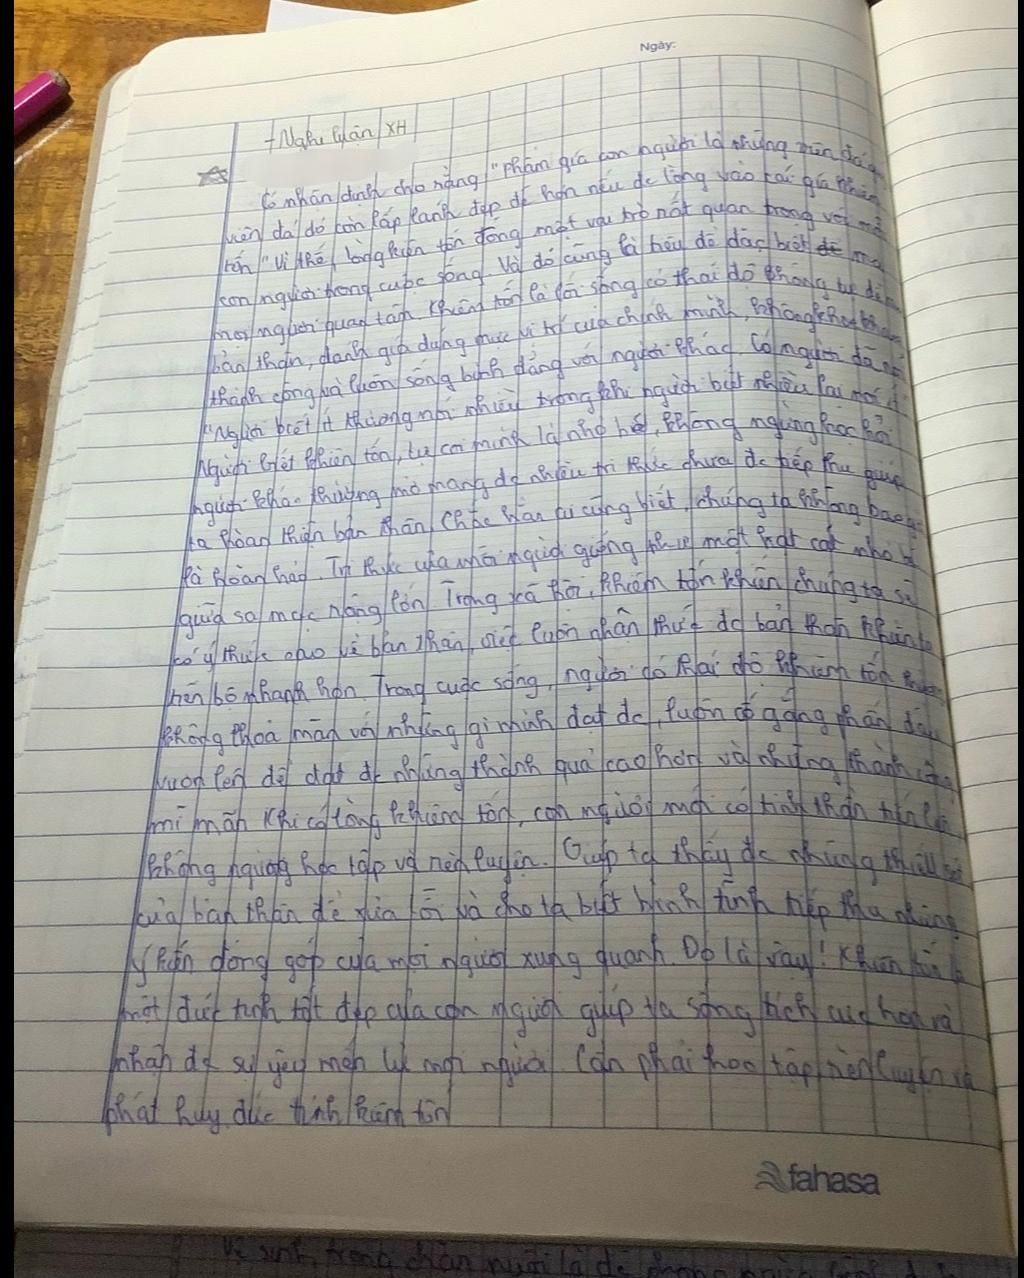 Ngày:
+ Nghị luận XH
Có nhân định cho rằng "phẩm giá con người là những
viên đá đó còn lấp lánh đẹp đẽ hơn nếu đc lồng vào cái giá khiêm
tốn" Vì thế, lòng khiêm tốn đóng một vai trò rất quan trọng với mỗi
con người trong cuộc sống. Và đó cũng là hếu đề đặc biệt đề mọ
mọi người quan tâm. Khiêm tốn là lối sống có thái độ không tự
bản thân, đánh giá đúng mức vị trí của chính mình, không
thành công và luôn sống bình đẳng với người khác. Có người đã
"Người biết ít thường nói nhiều trong khi người biết nhiều lại nói ít
Người biết khiên tốn, tự coi mình là nhỏ bé, không ngừng học hỏi
người khác thường mở mang đc nhiều tri thức chưa đc tiếp thu giúp
ta hoàn thiện bản thân. Chắc hẳn ai cũng biết, chúng ta không bao
là hoàn hảo. Tri thức của mỗi người giống như một hạt cát nhỏ
giữa sa mạc rộng lớn. Trong xã hội, khiêm tốn khiến chúng ta sẽ
có ý thức cao về bản thân, luôn nhận thức đc bản thân
tiến bộ nhanh hơn. Trong cuộc sống, người có thái độ khiêm tốn
không thoả mãn với những gì mình đạt đc, luôn cố gắng phấn đấu
vươn lên để đạt đc những thành quả cao hơn và những thành
mĩ mãn. Khi có lòng khiêm tốn, con người mới có tinh thần
không ngừng học tập và rèn luyện. Giúp ta thấy đc những
của bản thân để sửa lỗi và cho ta biết bình tĩnh tiếp thu những
ý kiến đóng góp của mọi người xung quanh. Đó là vậy! Khiêm tốn là
một đức tính tốt đẹp của con người giúp ta sống tích cực hơn và
nhận đc sự yêu mến từ mọi người. Cần phải học tập, rèn luyện và
phát huy đức tính khiêm tốn
fahasa